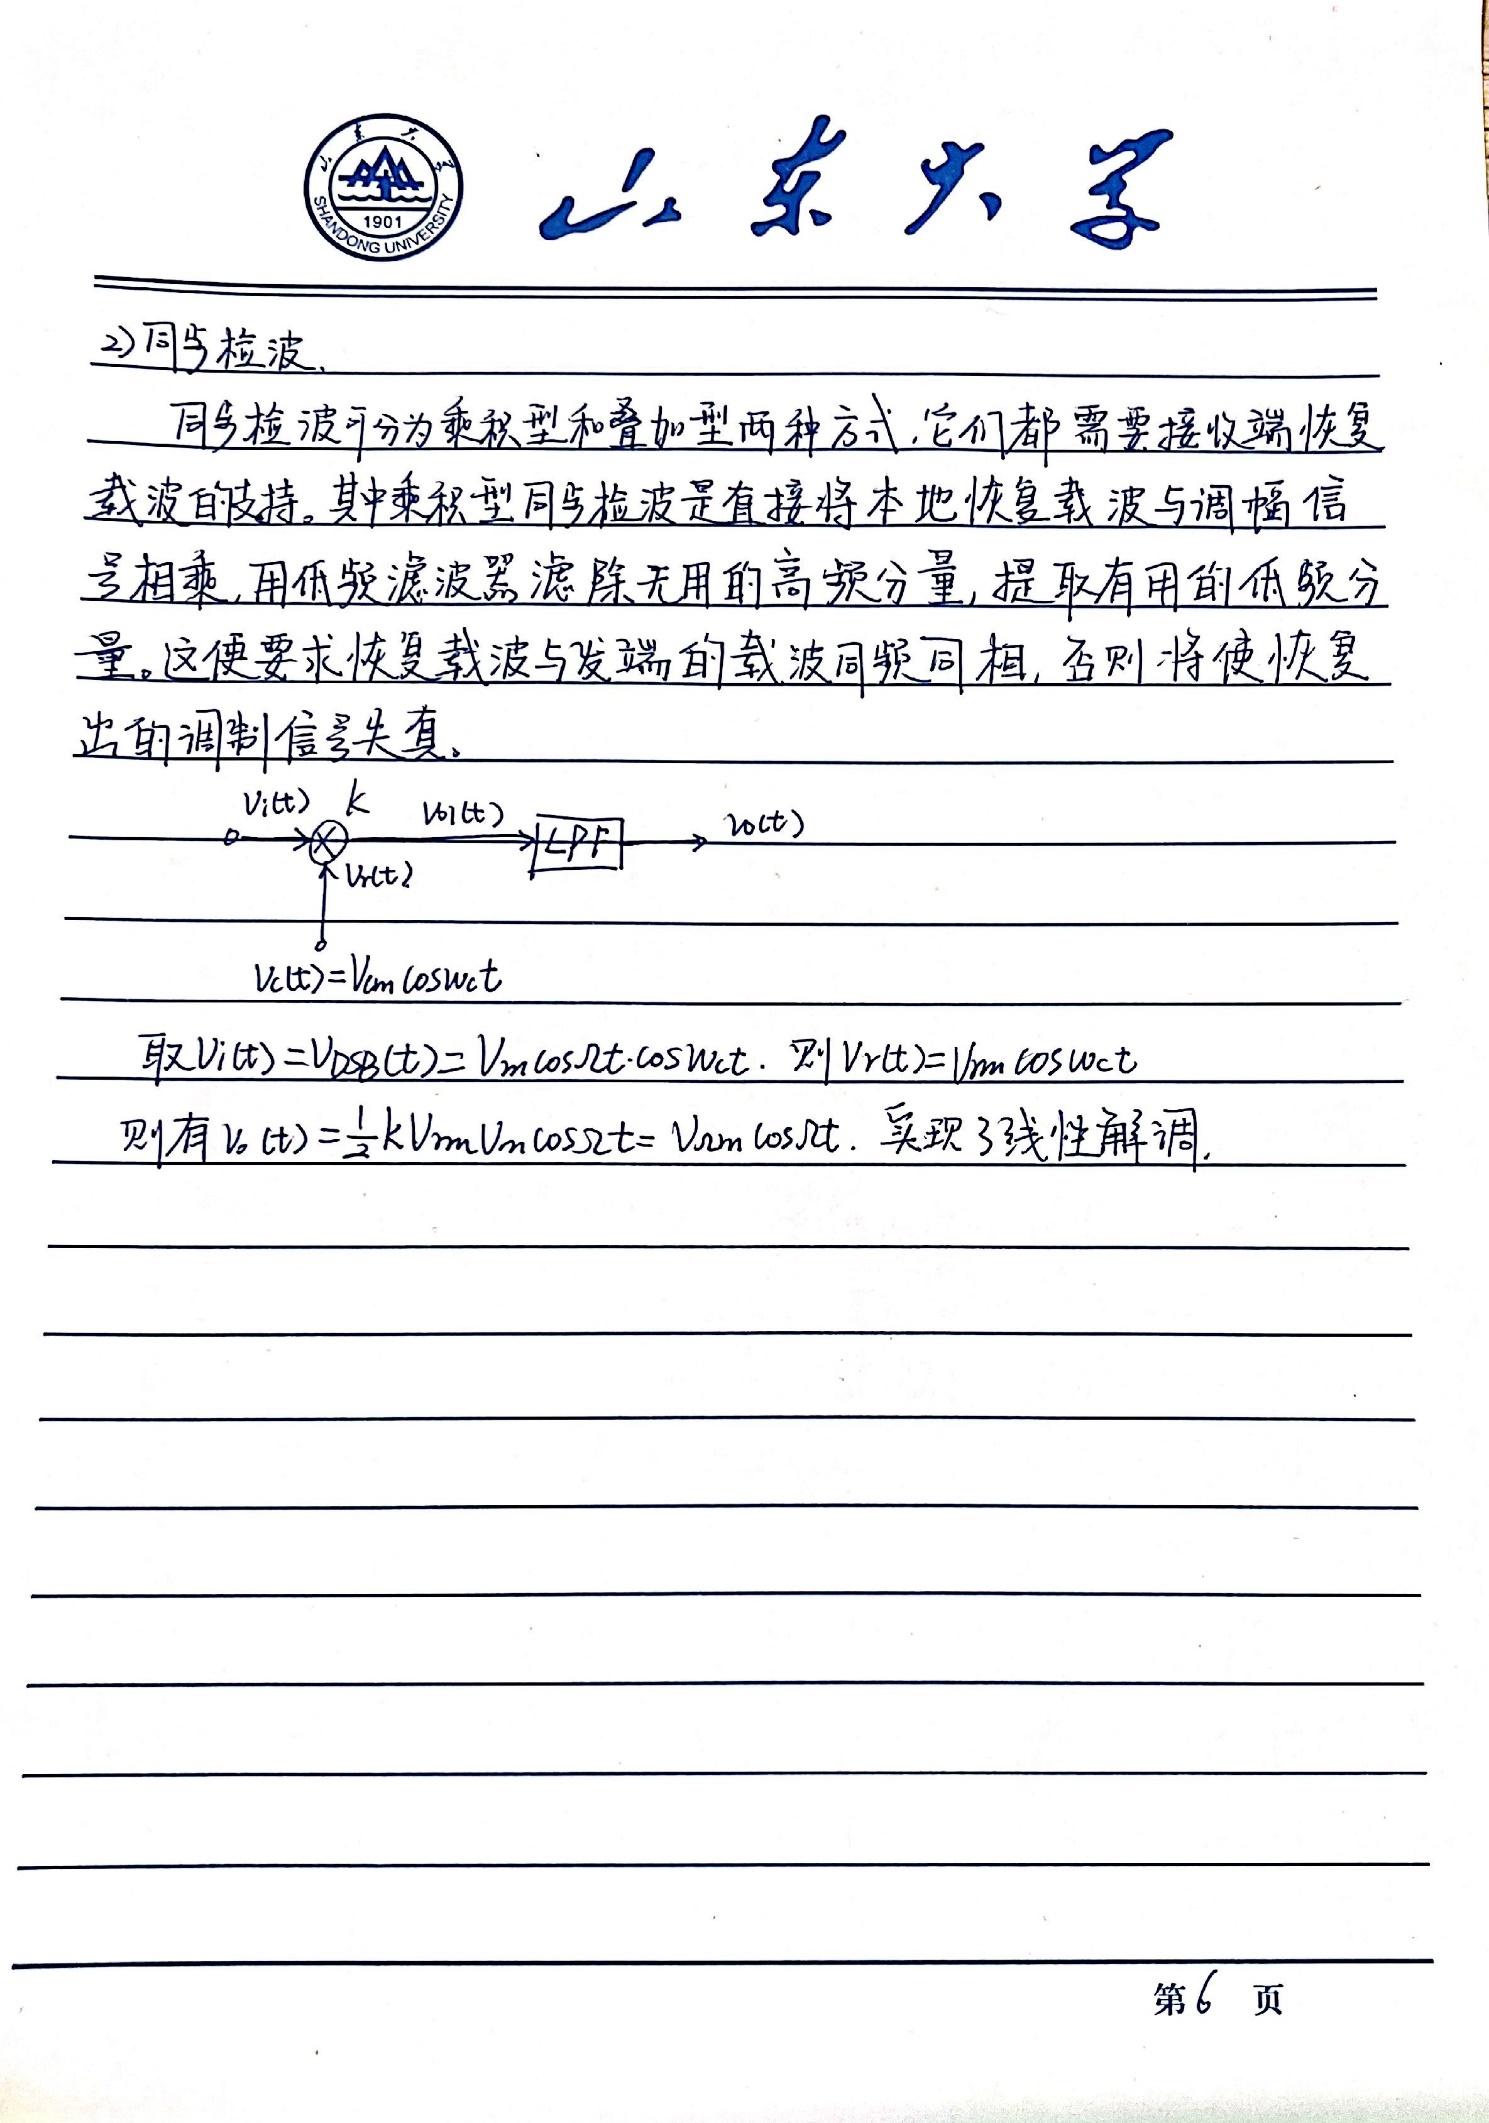 山东大学
山东大学
1901
SHANDONG UNIVERSITY
2)同步检波.
同步检波可分为乘积型和叠加型两种方式.它们都需要接收端恢复
载波的支持。其中乘积型同步检波是直接将本地恢复载波与调幅信
号相乘,用低频滤波器滤除无用的高频分量,提取有用的低频分
量。这便要求恢复载波与发端的载波同频同相,否则将使恢复
出的调制信号失真。
Vi(t) K Vo1(t) LPF Vo(t)
Vr(t)
Vc(t)=Vcm cosωct
取Vi(t)=VDSB(t)=Vm cosΩt·cosωct. 则Vr(t)=Vrm cosωct
则有Vo(t)=½kVrmVm cosΩt=VΩm cosΩt. 实现了线性解调.
第6页